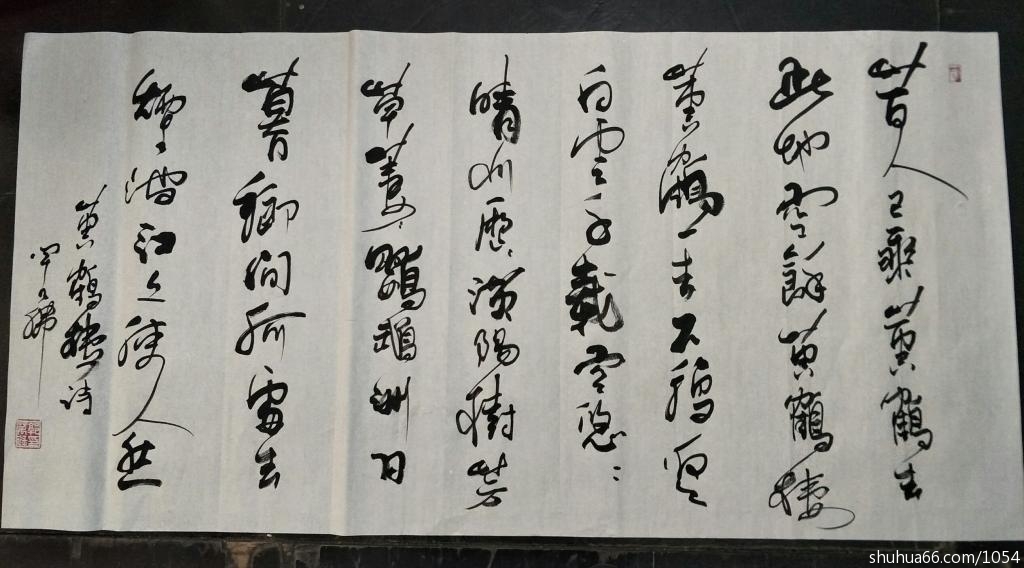 昔人已乘黄鶴去
此地空餘黄鶴樓
黄鶴一去不復返
白雲千載空悠々
晴川歷々漢陽樹芳
草萋々鸚鵡洲日
暮鄉關何處去
煙波江上使人愁
黄鶴樓詩
shuhua66.com/1054